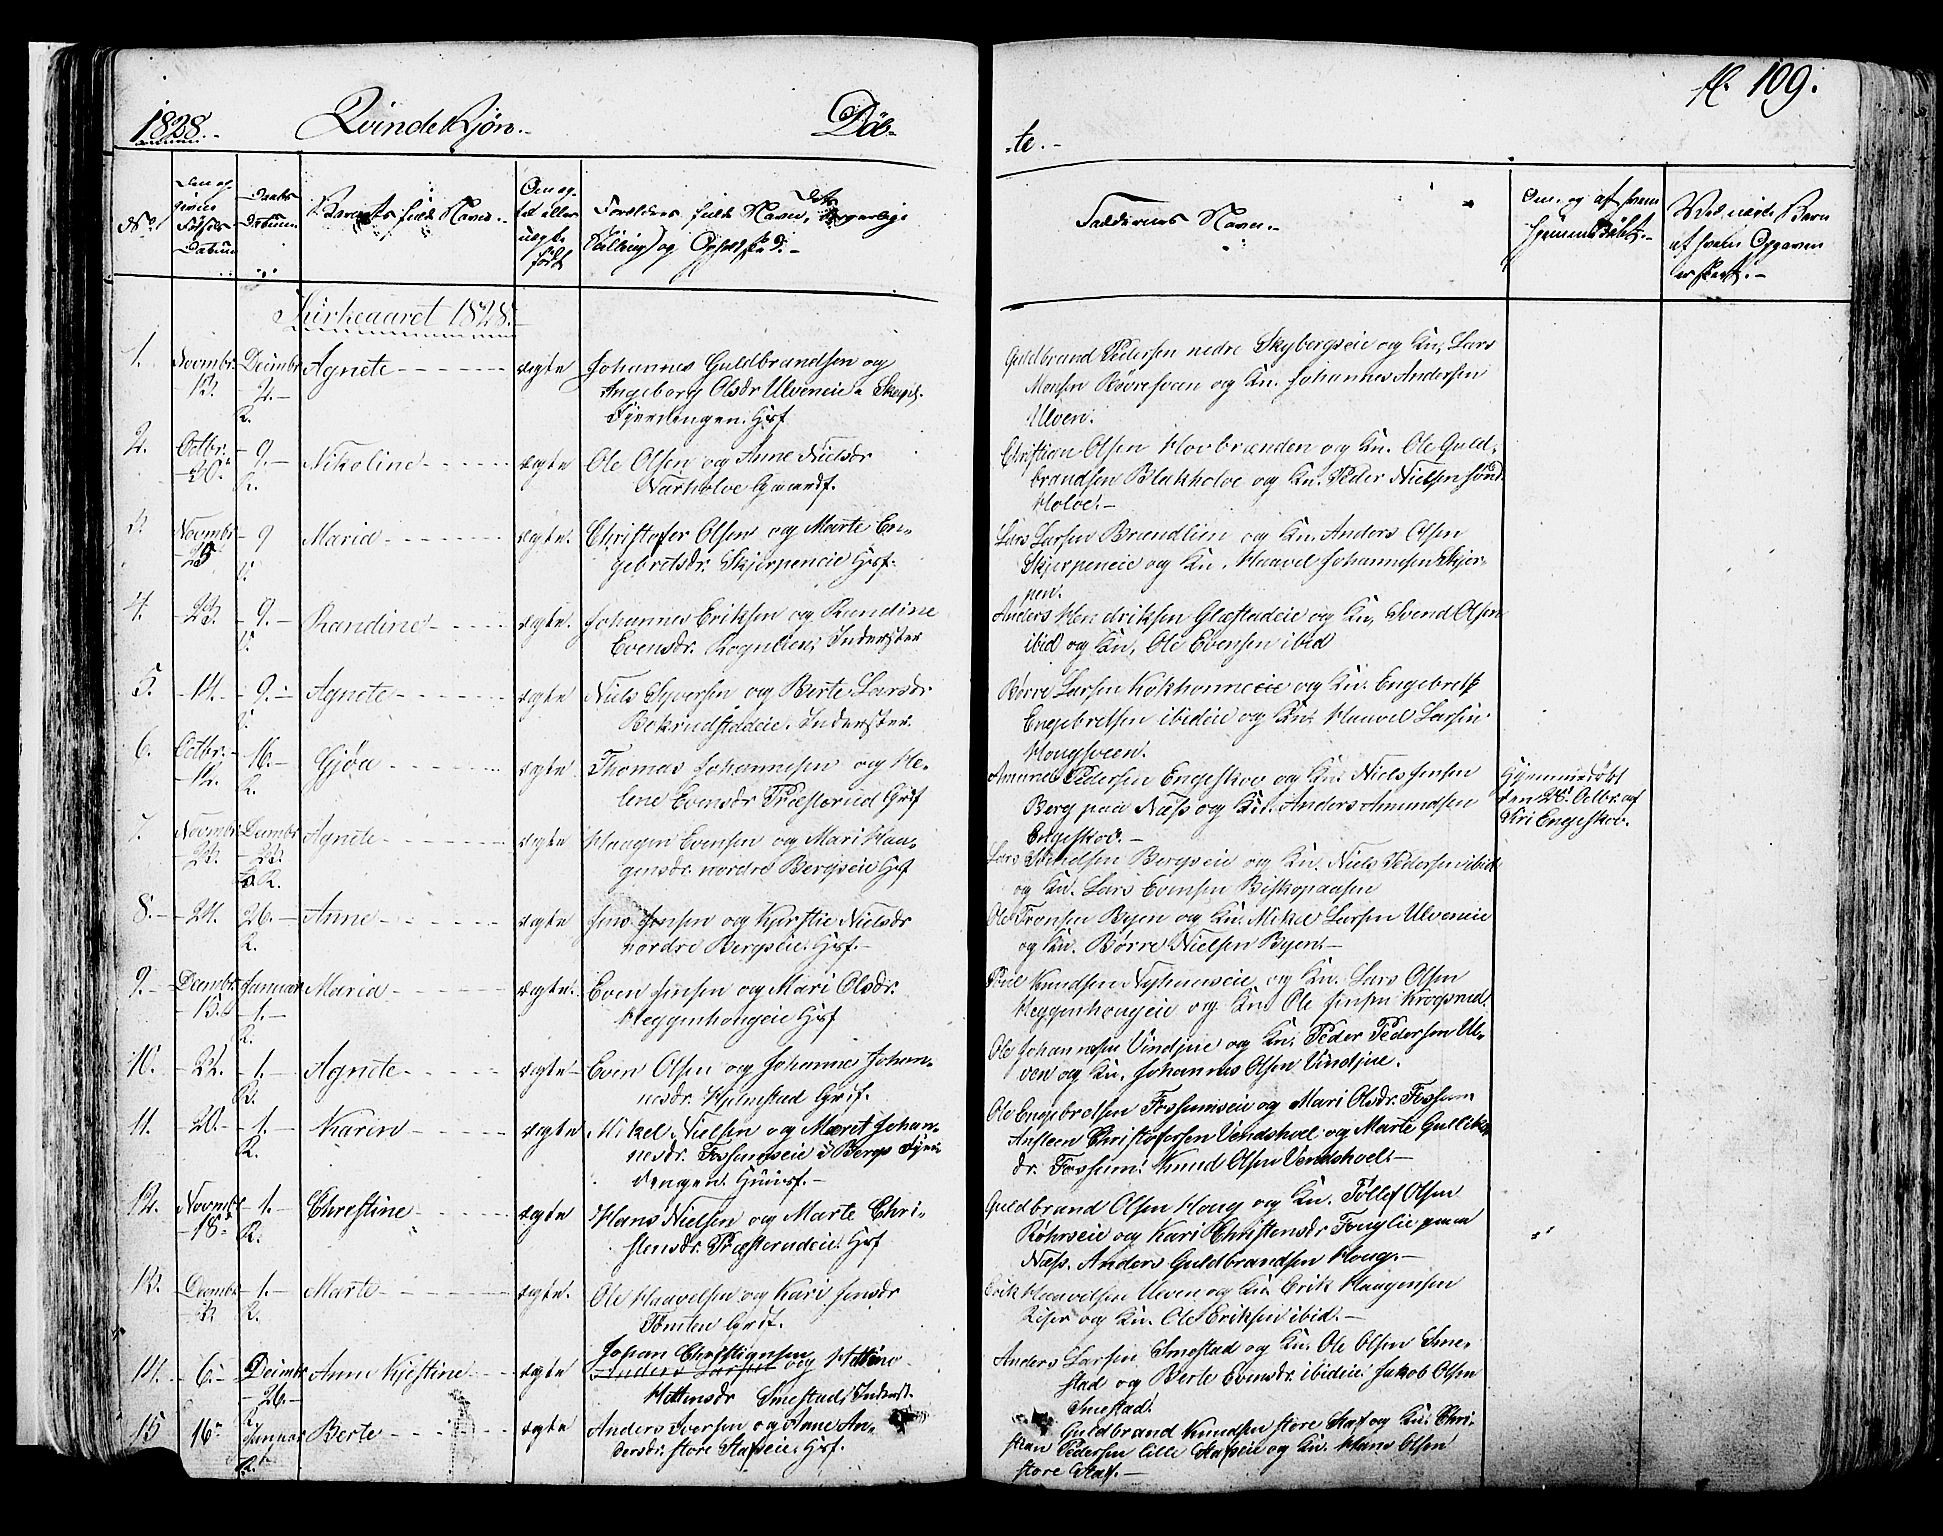 1828.-
QvindeKjøn.-
Döb-
-te.-
109.
No
Den op-
given
Fødsels
Datum
Daabs
Datum
Barnets fulde Navn.-
Om æg-
te eller
uægte
født
Forældres fulde Navn, borgerlige
Stilling og Opholsted.-
Faddernes Navn.-
Om, og af hvem
hjemmedöbt.-
Kirkeaaret 1828.
1.
Novmbr.
12.
Decmbr
4.-
R.
Agnete
ægte
Johannes Guldbrandsen og
Ingeborg Olsdr Ulveneie i Skept.
Fjerdingen. Hsf
Guldbrand Pedersen nedre Skybergseie og Kn, Lars
Moesen Røvresvan og Kn. Johannes Andersen
Ulven.
2.
Octbr.
20.
9.-
R.
Nikoline
ægte
Ole Olsen og Anne Nielsdr
Nærholve Gaardf.
Christian Olsen Hovbrænden og Kn. Ole Guld-
brandsen Blakholve og Kn. Peder Nielsen sønd
Holve.-
3.
Novmbr
25
9
V.
Maria
ægte.
Christofer Olsen og Marte En-
gebretsdr. Skjerpeneie Hsf.
Lars Larsen Brændlien og Kn. Anders Olsen
Skjerpeneie og Kn. Haavel Johannesen Skjer-
pen.
4.
23.
9.-
V.
Randine
ægte.
Johannes Eriksen og Randine
Evensdr. Rognlien, Inderster
Anders Hendriksen Glæstadeie og Kn, Svend Olsen
ibid og Kn, Ole Evensen ibid
5.
-14.-
9.-
V.
Agnete
ægte
Niels Syversen og Berte Larsdr
Bekrudstadeie. Inderster
Børre Larsen Kokhonneeie og Kn. Engebret
Engebretsen ibideie og Kn. Haavel Larsen
Hougsveen.
6.
Octbr.-
-12.
16.-
R.
Gjøa
ægte
Thomas Johannesen og He-
lene Evensdr Præsterud Hsf
Amund Pedersen Engeskov og Kn. Niels Jensen
Berg paa Næss og Kn. Anders Amundsen
Engeskov.-
Hjemmedøbt
den 28. Octbr. af
Kri Engeskov.
7.
Novmbr
23.
Decmbr
23.
R.
Agnete
ægte
Haagen Evensen og Mari Haa-
gensdr. nordre Bergseie Hsf
Bergseie og Kn. Niels Pedersen ibid
og Kn. Lars Evensen Biskopaasen
8.-
24.
26.-
R.
Anne
ægte
Jens Jensen og Karstie Nielsdr
nordre Bergseie. Hsf.-
Ole Tronsen Byen og Kn. Mikel Larsen Ulveneie
og Kn. Børre Nielsen Byen.-
9.-
Decmbr
-13.
Januar
-1.-
R.
Maria
ægte.
Even Jensen og Mari Olsdr.
Heggenhougeie Hsf
Poul Knudsen Nyhuuseie, og Kn. Lars Olsen
Heggenhougeie og Kn. Ole Jensen Krogsrud.
10.
-22.
-1.-
R.
Agnete
ægte-
Even Olsen og Johanne Johan-
nesdr. Hjelmstad Grif.
Ole Johannesen Vindjue og Kn. Peder Pedersen Ul-
ven og Kn. Johannes Olsen Vindjue.
11.
-20.-
-1.-
R.
Karen
ægte
Mikel Nielsen og Marit Johan-
nesdr. Fossumseie i Bergs Fjer
dingen. Huusf.-
Ole Engebretsen Fossumseie og Mari Olsdr. Fossum
Ansteen Christofersen Vendshoel og Marte Gulliks
dr. Fossum. Knud Olsen Vendshoel.-
12.
Novmbr
-18-
1.-
R.
Christine
ægte
Hans Nielsen og Marte Chri-
stensdr. Præsterudeie. Hsf
Guldbrand Olsen Houg og Kn. Tollef Olsen
Røhrseie og Kari Christensdr Fouglie paa
Næss. Anders Guldbrandsen Houg.-
13.
Decmbr
1.-
R.
Marte
ægte.
Ole Haavelsen og Kari Jensdr
Tomten Grif.
Erik Haavelsen Ulven og Kn. Erik Haagensen
Riser og Kn. Ole Eriksen ibid.-
14.
-6.-
Decmbr
-26.-
R
Anne Kjestine
ægte
Johan Christiansen
Anders Larsen og
Smestad, Inderst.
Anders Larsen Smestad og Kn. Ole Olsen Sme-
stad og Berte Evensdr. ibideie. Jakob Olsen
Smestad.
15
16
Januar
1.
R.
Berte
ægte
Anders Iversen og Anne An-
dersdr. store Stafseie. Hsf.
Guldbrand Knudsen store Staf og Kn. Chri-
stian Pedersen lille Stafseie og Kn. Hans Olsen
store Staf.-